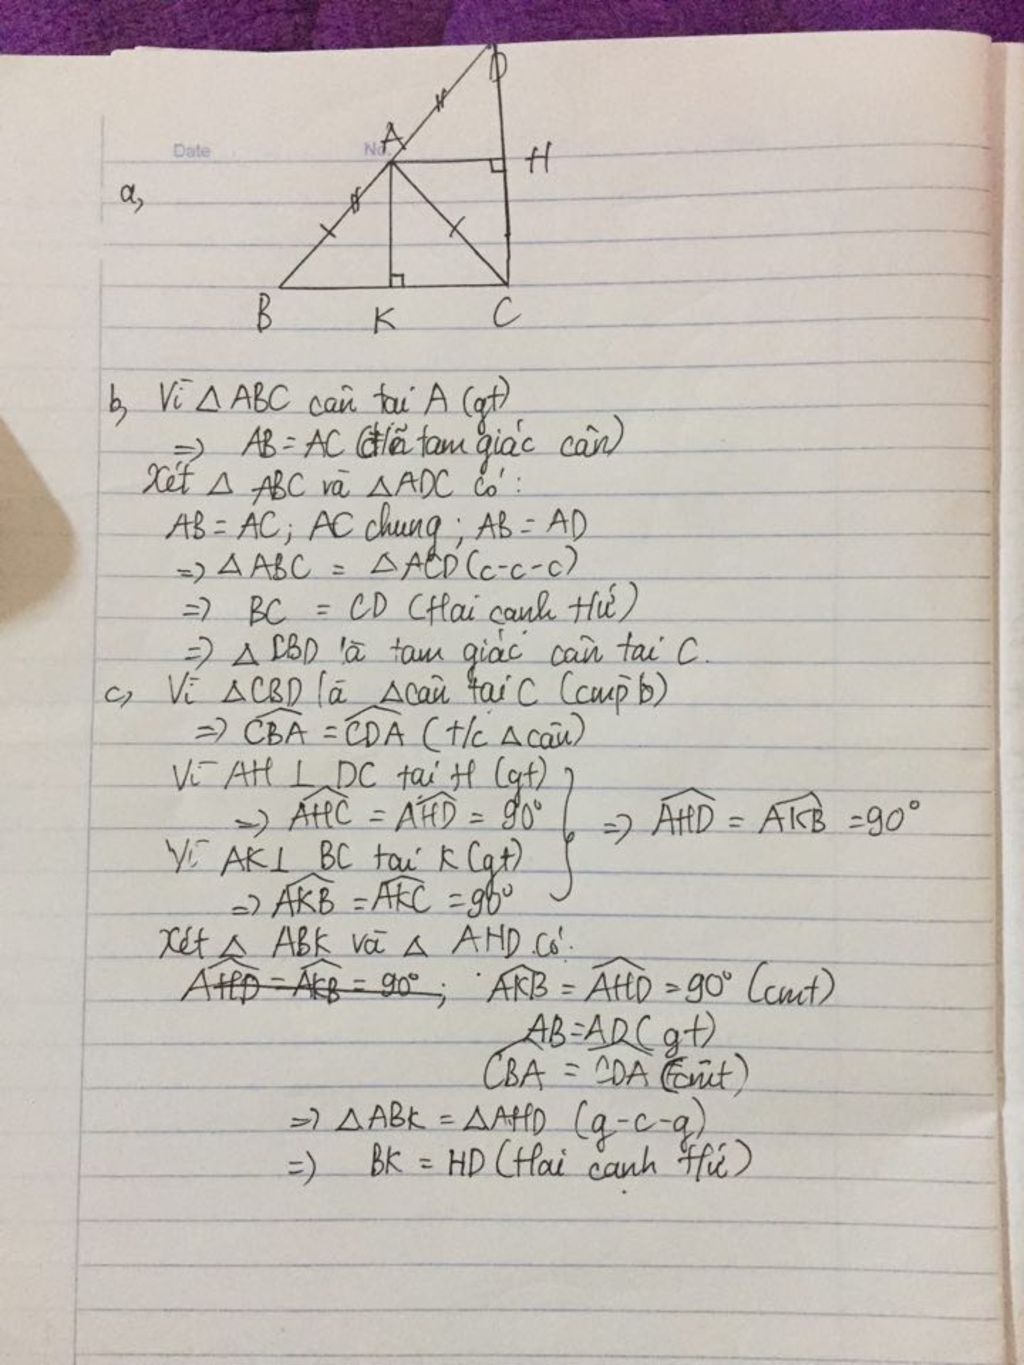 D
A
Date No.
H
a,
B K C
b, Vì △ ABC cân tại A (gt)
=> AB = AC ( tam giác cân)
Xét △ ABC và △ADC có:
AB = AC; AC chung; AB = AD
=> △ABC = △ACD (c-c-c)
=> BC = CD (Hai cạnh t/ứ)
=> △ CBD là tam giác cân tại C.
c, Vì △CBD là △cân tại C (cmp b)
=> CBA = CDA (t/c △cân)
Vì AH ⊥ DC tại H (gt)
=> AHC = AHD = 90° => AHD = AKB = 90°
Vì AK⊥ BC tại K (gt)
=> AKB = AKC = 90°
Xét △ ABK và △ AHD có:
AHD = AKB = 90°; AKB = AHD = 90° (cmt)
AB=AD (gt)
CBA = CDA (cmt)
=> △ABK = △AHD (g-c-g)
=> BK = HD (Hai cạnh t/ứ)